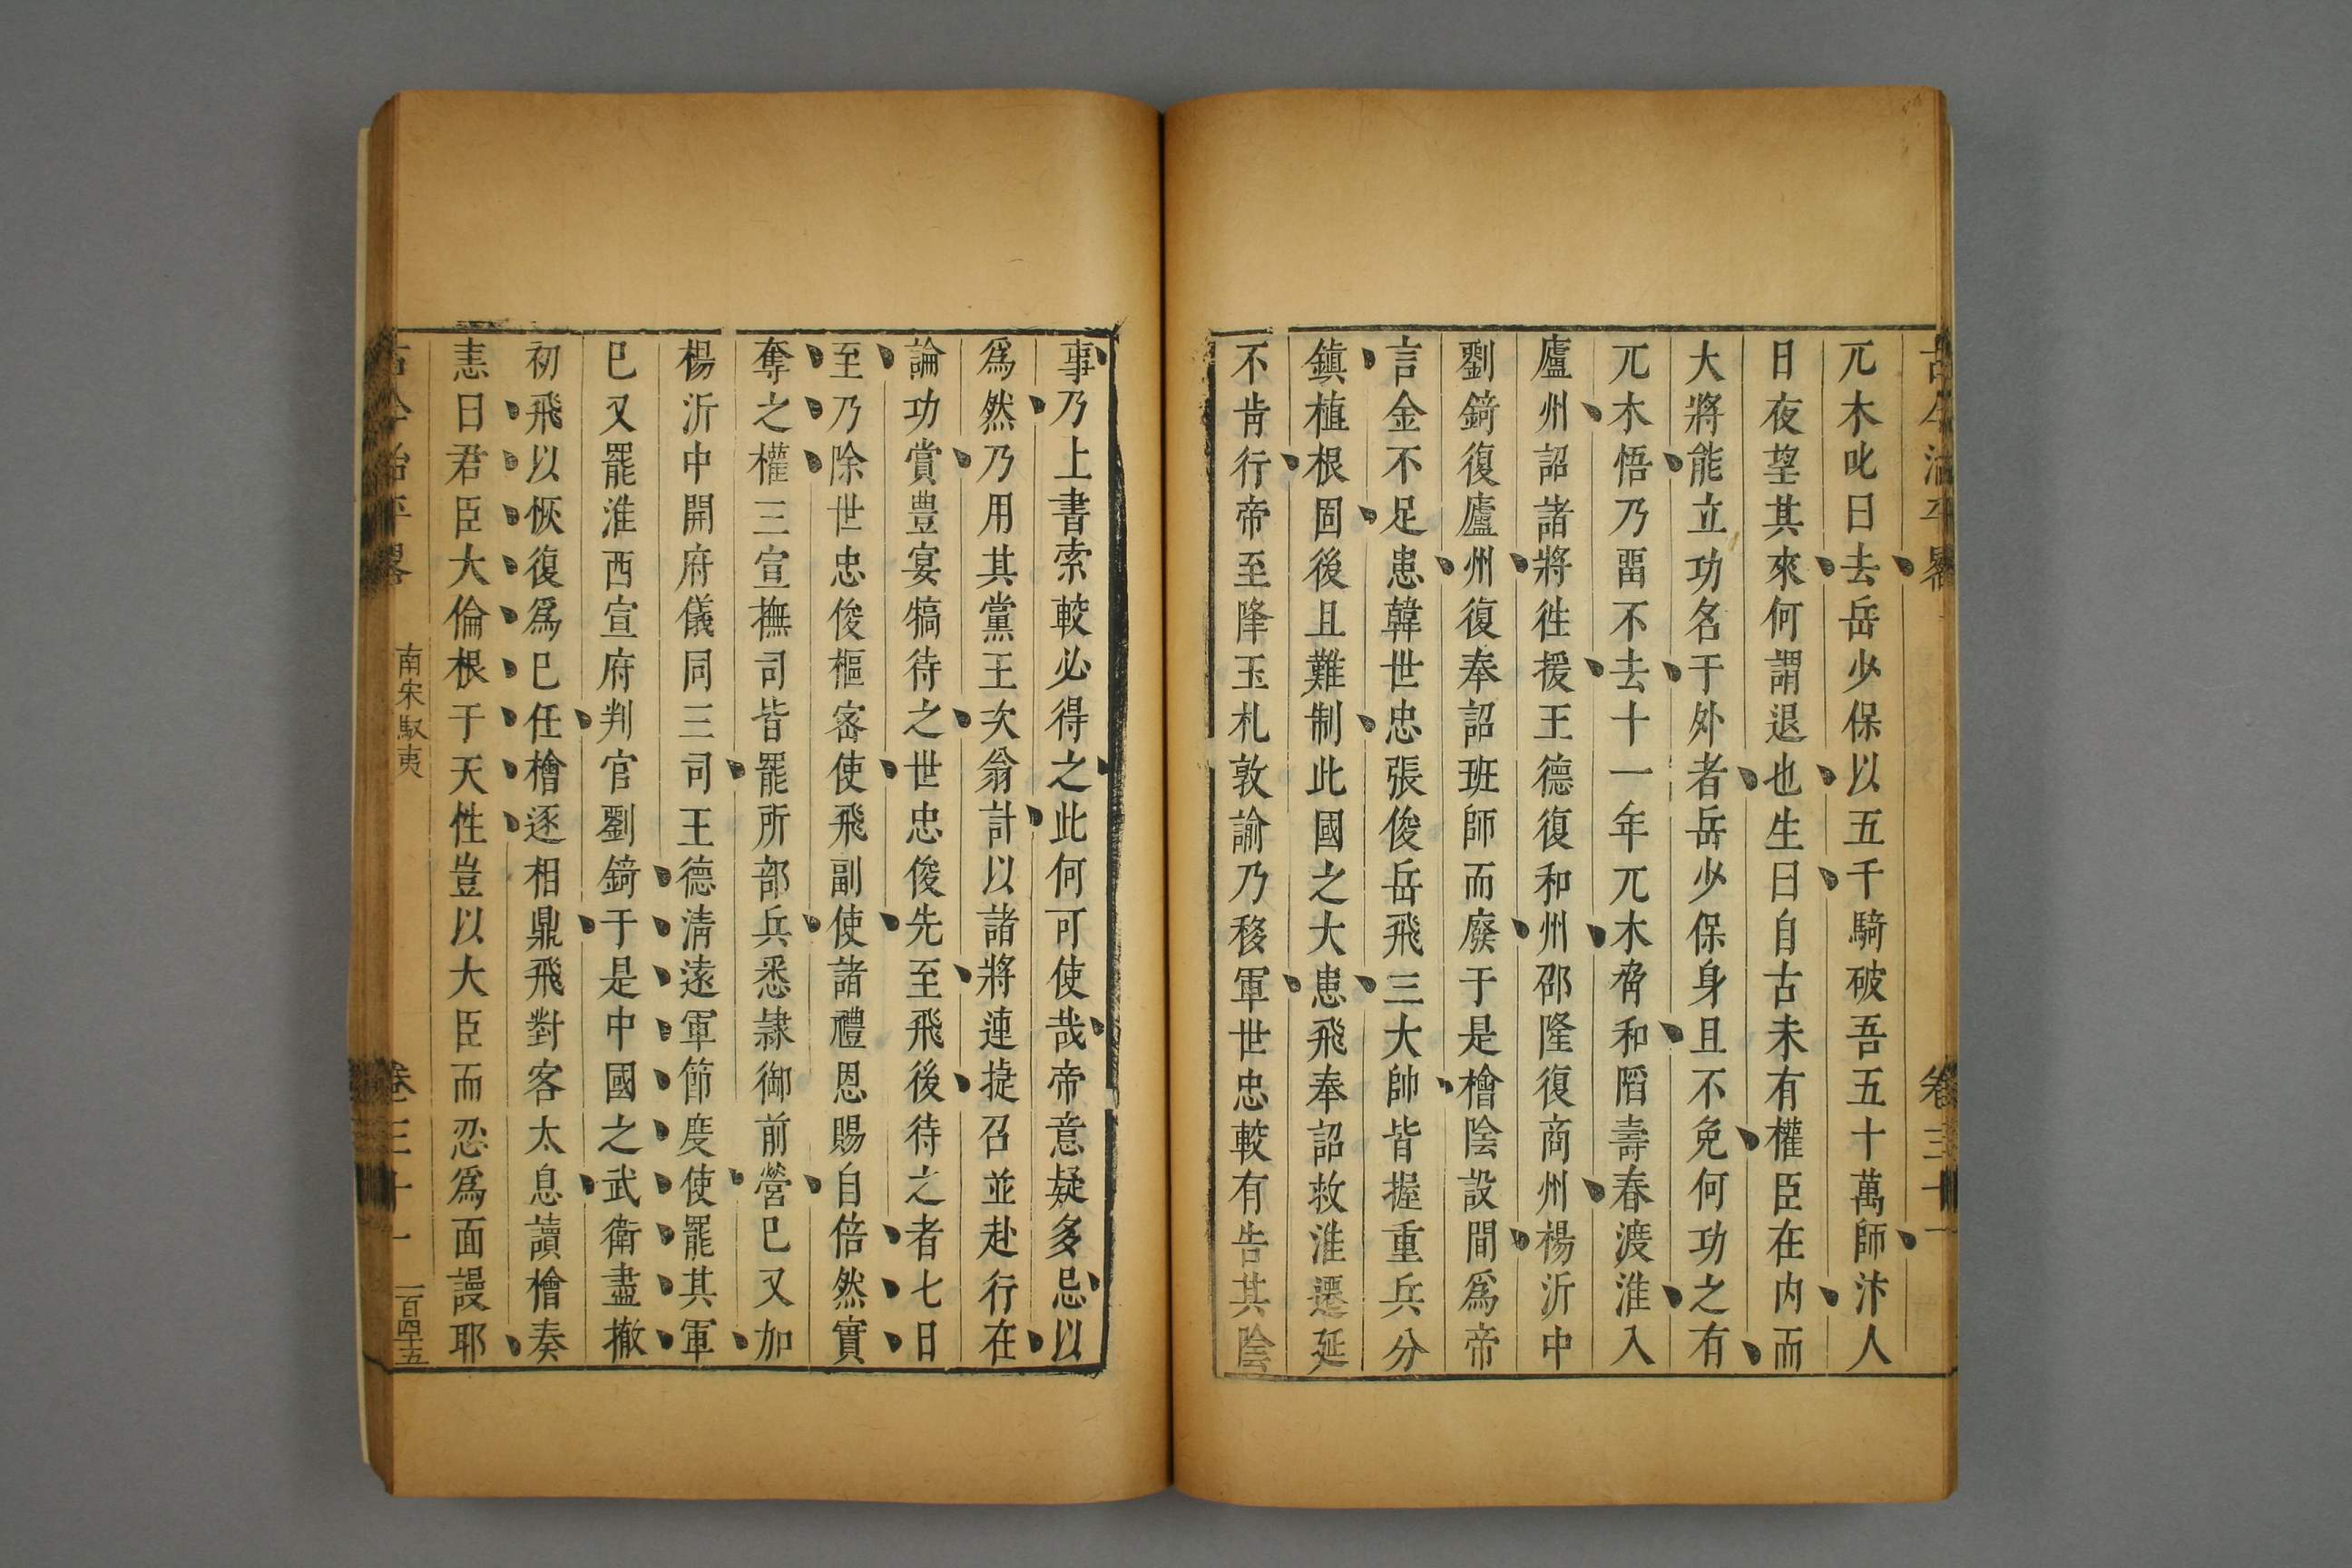 古今治平畧 卷三十一
兀木叱曰去岳少保以五千騎破吾五十萬師汴人
日夜望其來何謂退也生曰自古未有權臣在内而
大將能立功名于外者岳少保身且不免何功之有
兀木悟乃畱不去十一年兀木脅和陷壽春渡淮入
廬州詔諸將徃援王德復和州邵隆復商州楊沂中
劉錡復廬州復奉詔班師而廢于是檜陰設間爲帝
言金不足患韓世忠張俊岳飛三大帥皆握重兵分
鎮植根固後且難制此國之大患飛奉詔救淮遷延
不肯行帝至降玉札敦諭乃移軍世忠較有告其陰
事乃上書索較必得之此何可使哉帝意疑多忌以
爲然乃用其黨王次翁計以諸將連捷召並赴行在
論功賞豊宴犒待之世忠俊先至飛後待之者七日
至乃除世忠俊樞宻使飛副使諸禮恩賜自倍然實
奪之權三宣撫司皆罷所部兵悉隷御前營巳又加
楊沂中開府儀同三司王德淸遠軍節度使罷其軍
巳又罷淮西宣府判官劉錡于是中國之武衛盡撤
初飛以恢復爲巳任檜逐相鼎飛對客太息讀檜奏
恚曰君臣大倫根于天性豈以大臣而忍爲面謾耶
古今治平畧 南宋馭夷 卷三十一 一百四十五